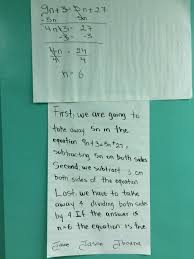 9n+3=5n+27
-5n 5n
4n+3=27
-3 -3
4n = 24
4 4
n=6
First, we are going to
take away 5n in the
equation 9n+3=5n+27,
subtracting 5n on both sides
Second, we subtract 3 on
both sides of the equation
Last, we have to take
away 4 dividing both sides
by 4. If the answer is
n=6 the equation is true
Jason